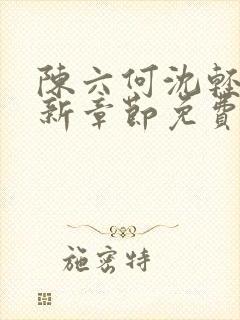 陳六何沈輕
新章節免費
施密特